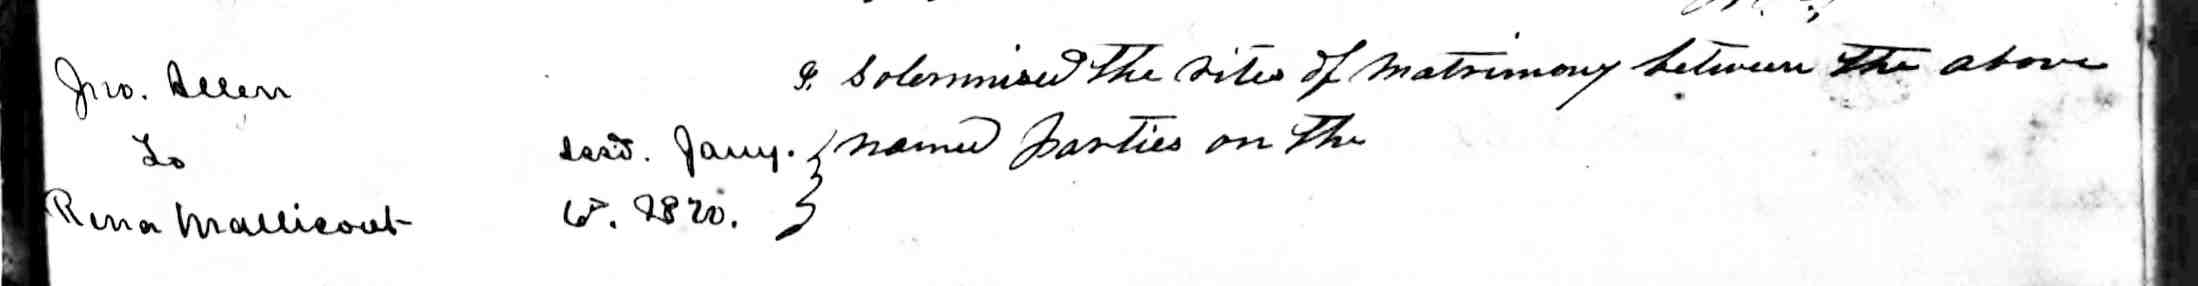 Jno. Allen
To
Rena Mallicoat
issd. Jany.
6th. 1870.
I solemnised the rites of matrimony between the above
named parties on the